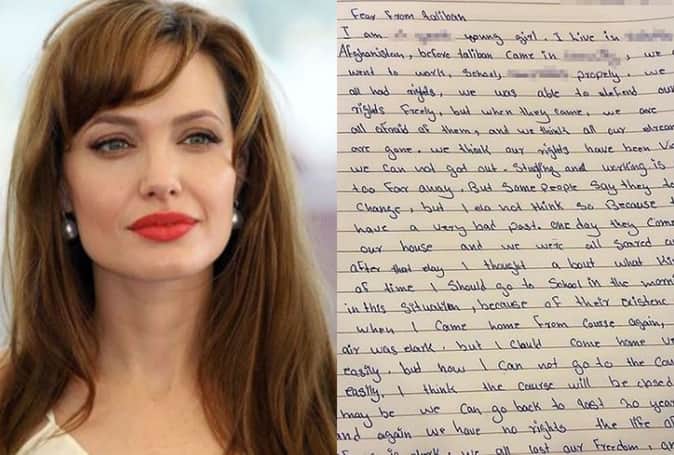 Fear From Taliban
I am young girl. I live in
Afghanistan, before taliban came in , we
went to work, School, propely. we
all had rights, we was able to defend our
rights Freely, but when they came, we are
all afraid of them, and we think all our dream
are gone. we think our rights have been Vio
we can not got out. Studing and working is
too Far away. But Some people Say they
Change, but I do not think so Because
have a very bad past. one day they Came
our house and we were all Scared
after that day I thought a bout what
of time I Should go to School in the morni
in this Situation, because of their existenc
when I Came home From Course again,
air was dark, but I Could Come home
easily, but now I Can not go to the Cou
easily, I think the Course will be closed
may be we Can go back to last 20 year
and again we have no rights the life of
is dark, we all lost our Freedom,